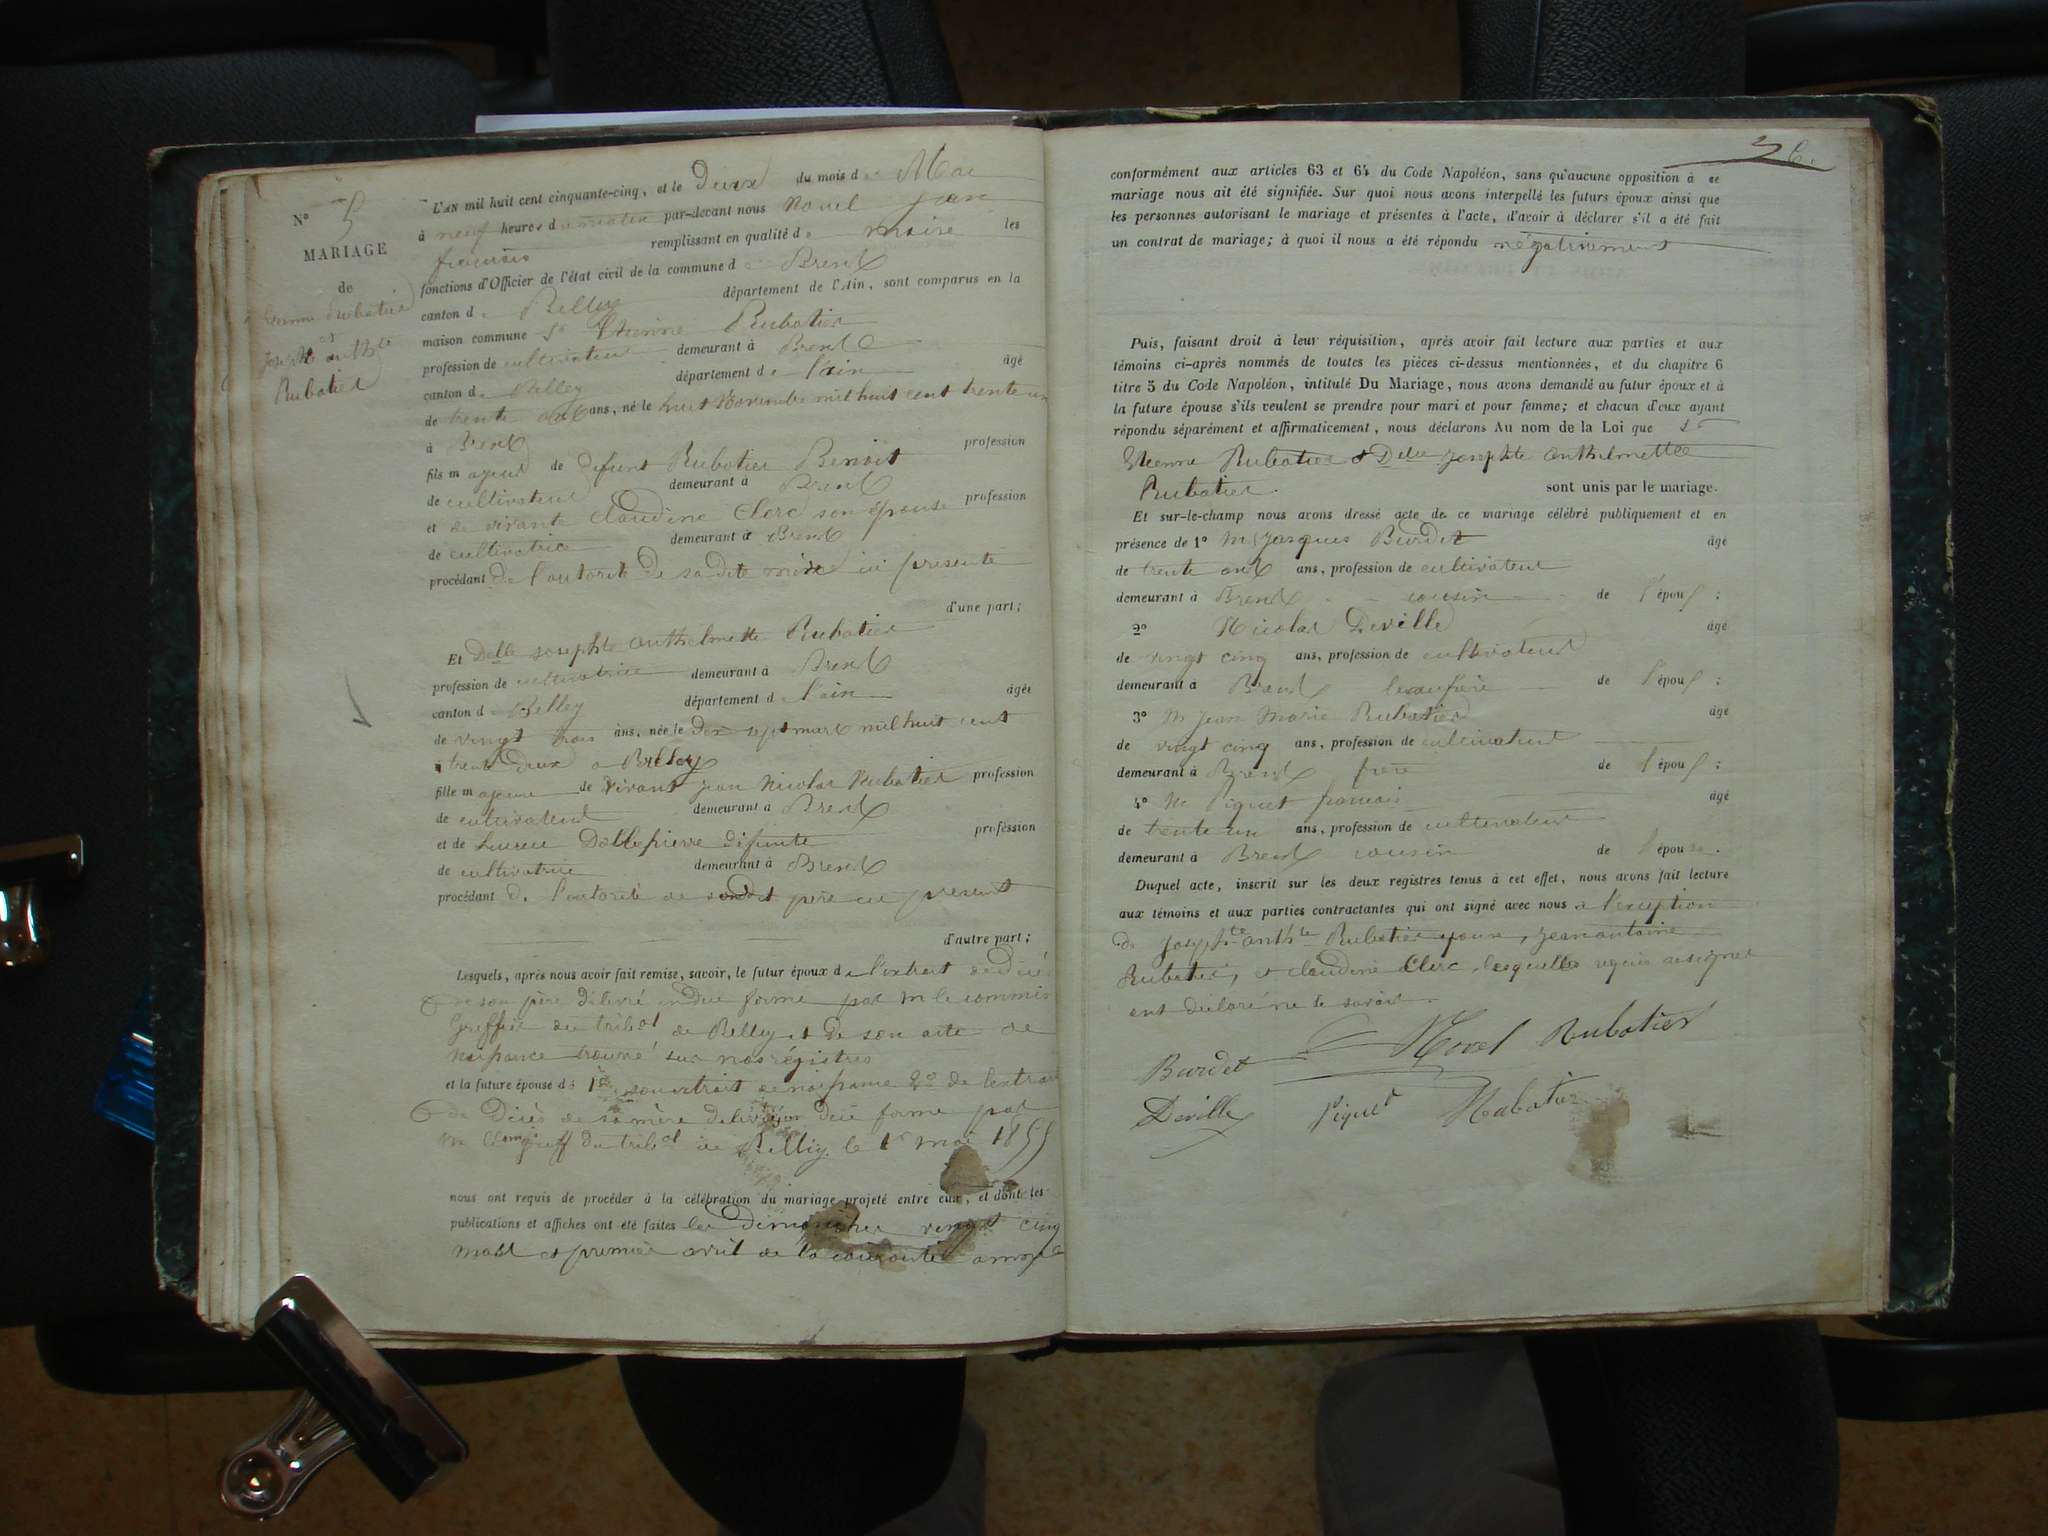 N° 5
MARIAGE
de
Etienne Rubatier
et
Josephte anth.te
Rubatier
L'AN mil huit cent cinquante-cinq, et le Deux du mois de Mai
à neuf heures du matin par-devant nous Novel Jean
françois remplissant en qualité de maire les
fonctions d'Officier de l'état civil de la commune d Brens
canton d Belley département de l'Ain, sont comparus en la
maison commune Sr Etienne Rubatier
profession de cultivateur demeurant à Brens
canton d Belley département de l'ain âgé
de trente ans, né le huit Novembre mil huit cent trente un
à Brens
fils majeur de défunt Rubatier Benoit profession
de cultivateur demeurant à Brens
et de vivante Claudine Clerc son épouse profession
de cultivatrice demeurant à Brens
procédant de l'autorité de sadite mère ici présente
d'une part;
Et Delle Josephte anthelmette Rubatier
profession de cultivatrice demeurant à Brens
canton d Belley département d l'ain âgée
de vingt trois ans, née le Dix sept mars mil huit cent
trente deux à Belley
fille majeure de vivant jean Nicolas Rubatier profession
de cultivateur demeurant à Brens
et de Dellepierre défunte profession
de cultivatrice demeurant à Brens
procédant de l'autorité de père ici présent
d'autre part;
Lesquels, après nous avoir fait remise, savoir, le futur époux de l'extrait de décés
de son père délivré en due forme par m le commis
Greffier du tribal de Belley et de son acte de
naissance trouvé sur nos régistres
et la future épouse de 1° son extrait de naissance 2° de l'extrait
de Décès de sa mère délivré en due forme par
m greff du tribal de Belley le 1er mai 1855
nous ont requis de procéder à la célébration du mariage projeté entre eux, et dont les
publications et affiches ont été faites les dimanches vingt cinq
mars et premier avril de la courante année
36.
conformément aux articles 63 et 64 du Code Napoléon, sans qu'aucune opposition à ce
mariage nous ait été signifiée. Sur quoi nous avons interpellé les futurs époux ainsi que
les personnes autorisant le mariage et présentes à l'acte, d'avoir à déclarer s'il a été fait
un contrat de mariage; à quoi il nous a été répondu négativement
Puis, faisant droit à leur réquisition, après avoir fait lecture aux parties et aux
témoins ci-après nommés de toutes les pièces ci-dessus mentionnées, et du chapitre 6
titre 5 du Code Napoléon, intitulé Du Mariage, nous avons demandé au futur époux et à
la future épouse s'ils veulent se prendre pour mari et pour femme; et chacun d'eux ayant
répondu séparément et affirmativement, nous déclarons Au nom de la Loi que Sr
Etienne Rubatier & Delle Josephte anthelmette
Rubatier. sont unis par le mariage.
Et sur-le-champ nous avons dressé acte de ce mariage célébré publiquement et en
présence de 1° M Jacques Burdet âgé
de trente ans, profession de cultivateur
demeurant à Brens cousin de l'époux;
2° Nicolas Deville âgé
de vingt cinq ans, profession de cultivateur
demeurant à Brens beaufrère de l'époux;
3° M Jean Marie Rubatier âgé
de vingt cinq ans, profession de cultivateur
demeurant à Brens frère de l'époux;
4° M Piquet françois âgé
de trente un ans, profession de cultivateur
demeurant à Brens cousin de l'épouse.
Duquel acte, inscrit sur les deux registres tenus à cet effet, nous avons fait lecture
aux témoins et aux parties contractantes qui ont signé avec nous à l'exception
de Joseph.te anth.te Rubatier , jean antoine
Rubatier, et claudine Clerc, lesquelles requis de signer
ont déclaré ne le savoir.
Novel Rubatier
Burdet
Deville Piquet Rubatier